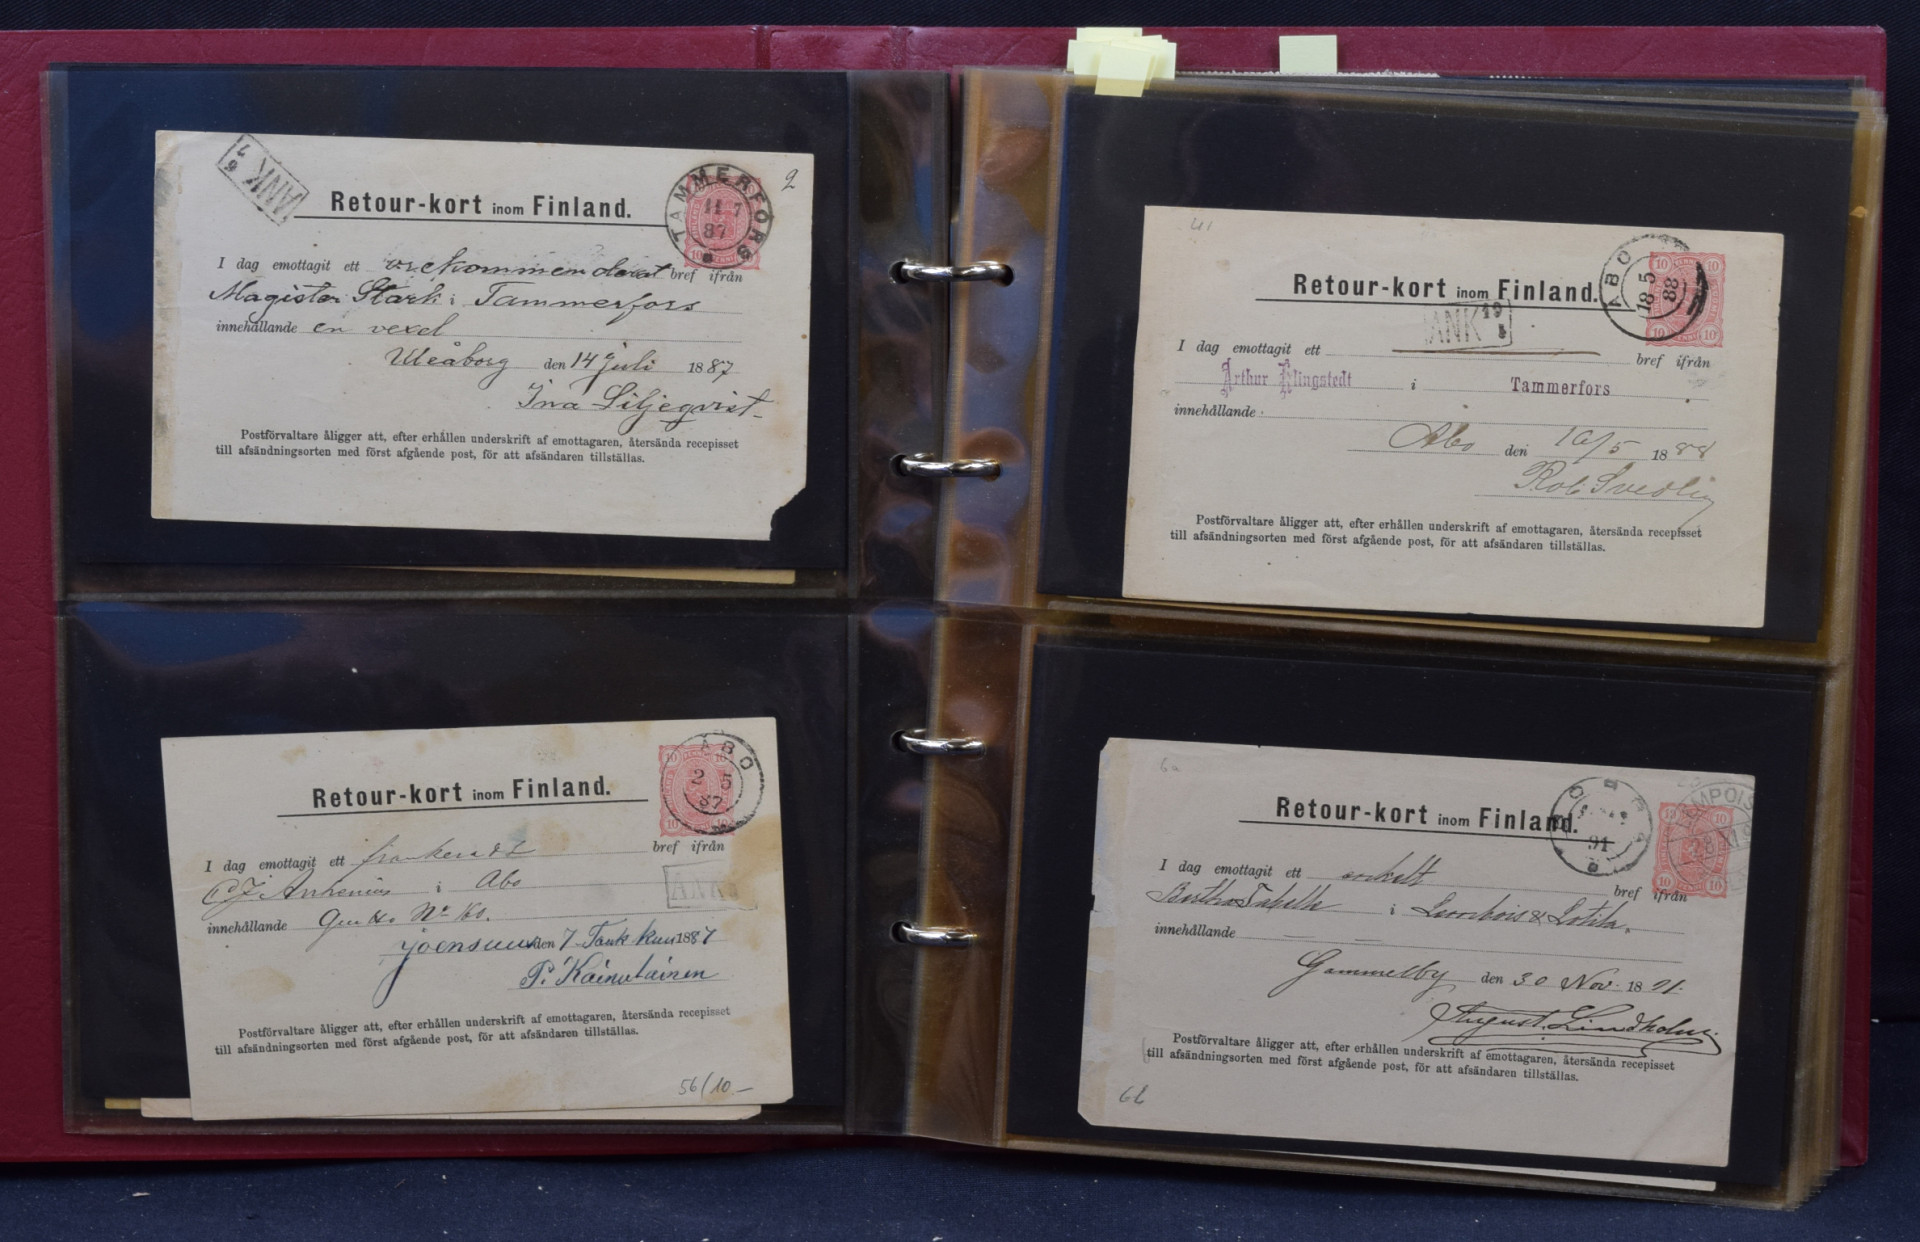 ANK
9 7
2
Retour-kort inom Finland.
TAMMERFORS
11 7
87
10
I dag emottagit ett rekommenderat bref ifrån
Magister Stark i Tammerfors
innehållande en vexel
Uleåborg den 14 juli 1887
Ina Liljeqvist
Postförvaltare åligger att, efter erhållen underskrift af emottagaren, återsända recepisset
till afsändningsorten med först afgående post, för att afsändaren tillställas.
Retour-kort inom Finland.
ÅBO
2 5
87
10 10
10 10
I dag emottagit ett bref ifrån
i Åbo
innehållande
Joensuu den 7 Touk kuu 1887
P. Kainulainen
Postförvaltare åligger att, efter erhållen underskrift af emottagaren, återsända recepisset
till afsändningsorten med först afgående post, för att afsändaren tillställas.
56/10.-
41
Retour-kort inom Finland.
ÅBO
18 5
88
10 10
10 10
ANK 19
I dag emottagit ett bref ifrån
Arthur Klingstedt i Tammerfors
innehållande
Åbo den 16/5 1888
Rob Svedlin
Postförvaltare åligger att, efter erhållen underskrift af emottagaren, återsända recepisset
till afsändningsorten med först afgående post, för att afsändaren tillställas.
6a
Retour-kort inom Finland.
91
10 10
10 10
I dag emottagit ett enkelt bref ifrån
i
innehållande
Gammelby den 30 Nov. 1891.
August Lindholm
Postförvaltare åligger att, efter erhållen underskrift af emottagaren, återsända recepisset
till afsändningsorten med först afgående post, för att afsändaren tillställas.